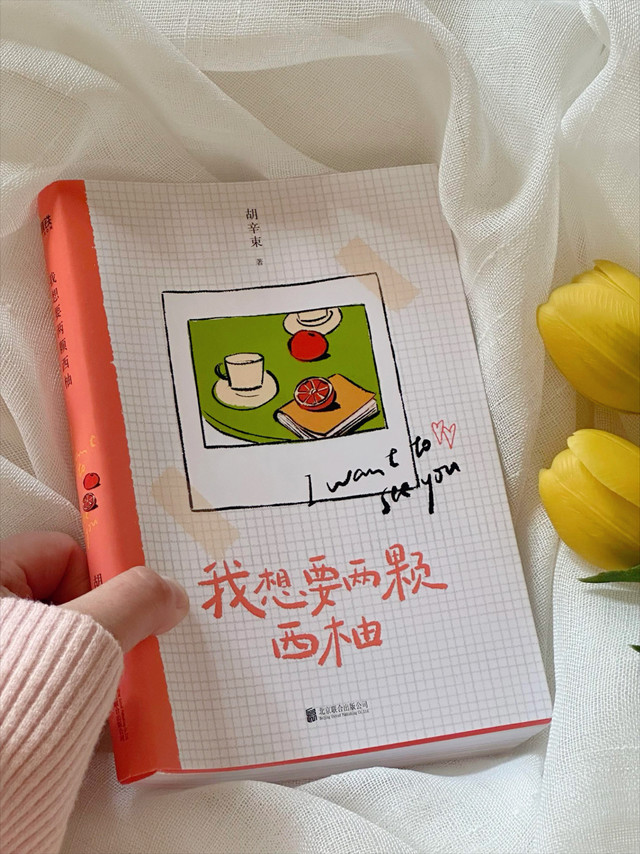 胡辛束
著
I want to
see you
我想要两颗
西柚
北京联合出版公司
我想要两颗西柚
胡